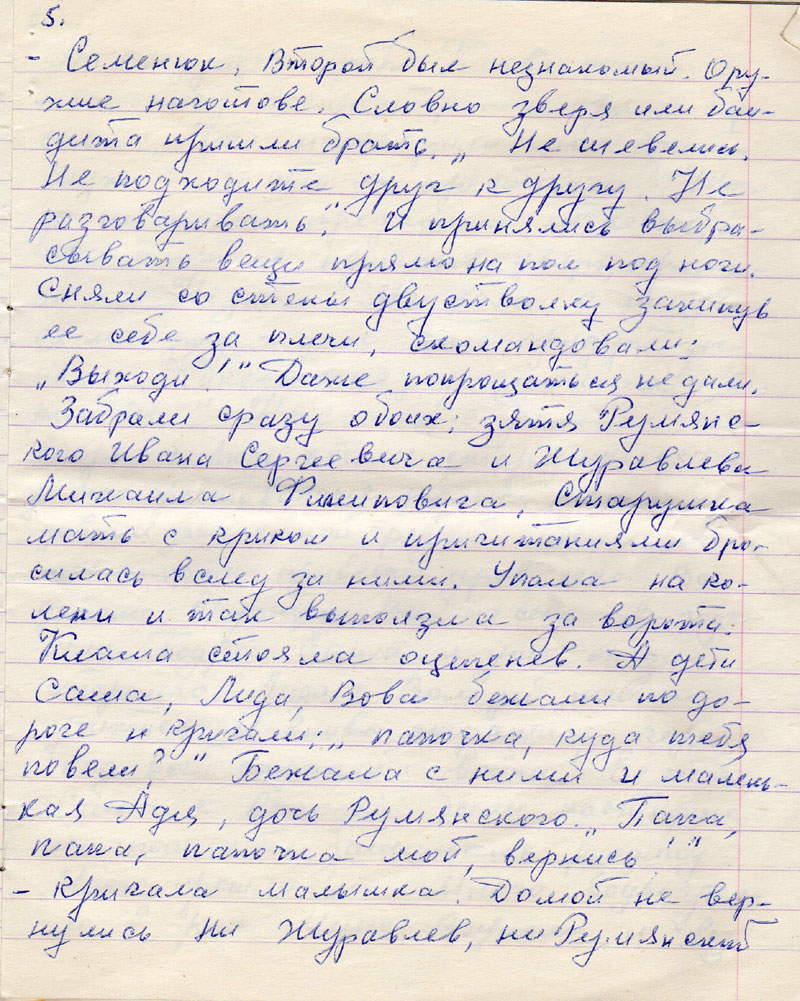 5.
- Семенюк. Второй был незнакомый. Ору-
жие наготове. Словно зверя или бан-
дита пришли брать. „ Не шевелись.
Не подходите друг к другу. Не
разговаривать." И принялись выбра-
сывать вещи прямо на пол под ноги.
Сняли со стены двустволку закинув
ее себе за плечи, скомандовали:
„Выходи!" Даже попрощаться не дали.
Забрали сразу обоих: зятя Румянс-
кого Ивана Сергеевича и Журавлева
Михаила Филиповича. Старушка
мать с криком и причитаниями бро-
силась вслед за ними. Упала на ко-
лени и так выползла за ворота.
Клаша стояла оцепенев. А дети
Саша, Лида, Вова бежали по до-
роге и кричали: „ папочка, куда тебя
повели?" Бежала с ними и малень-
кая Адя, дочь Румянского. „ Папа,
папа, папочка мой, вернись!"
- кричала малышка. Домой не вер-
нулись ни Журавлев, ни Румянский